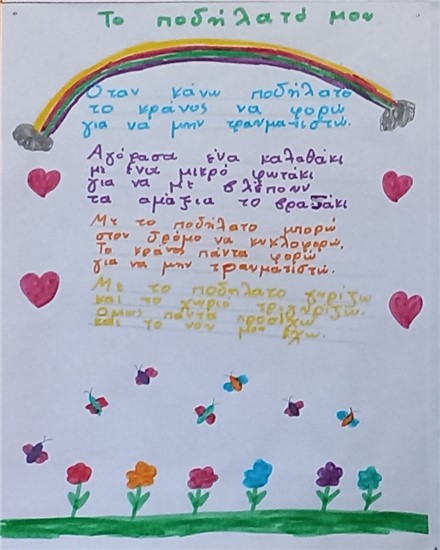 Το ποδήλατό μου
Όταν κάνω ποδήλατο
το κράνος να φορώ
για να μην τραυματιστώ.
Αγόρασα ένα καλαθάκι
με ένα μικρό φωτάκι
για να με βλέπουν
τα αμάξια το βραδάκι
Με το ποδήλατο μπορώ
στον δρόμο να κυκλοφορώ.
Το κράνος πάντα φορώ
για να μην τραυματιστώ.
Με το ποδήλατο γυρίζω
και το χωριό τριγυρίζω.
όμως πάντα προσέχω
και το νου μου έχω.